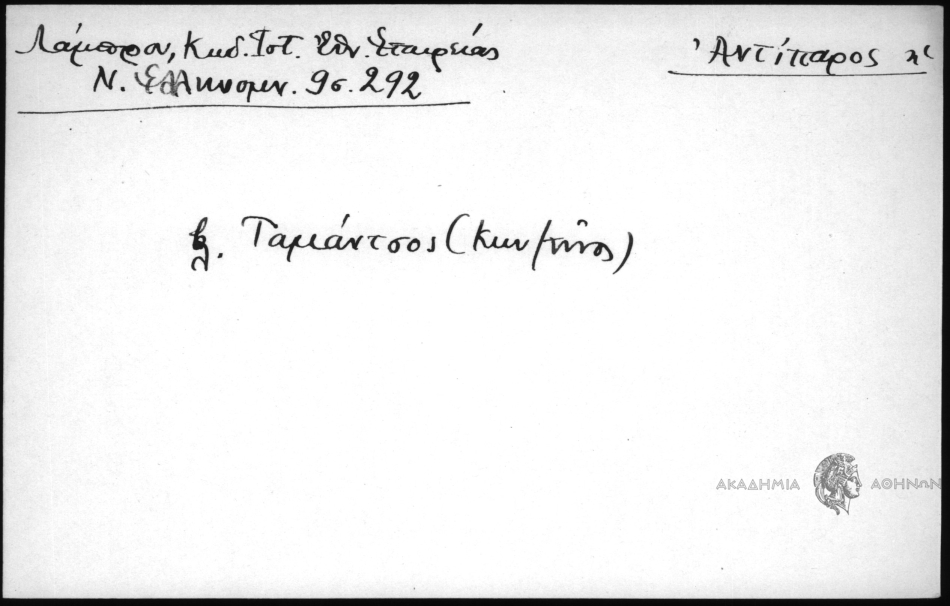 Λάμπρου, Κωδ. Ἱστ. Ἐθν. Ἑταιρείας
Ν. Ἑλληνομν. 9σ. 292
Ἀντίπαρος
βλ. Ταμιάντσος (
ΑΚΑΔΗΜΙΑ ΑΘΗΝΩΝ